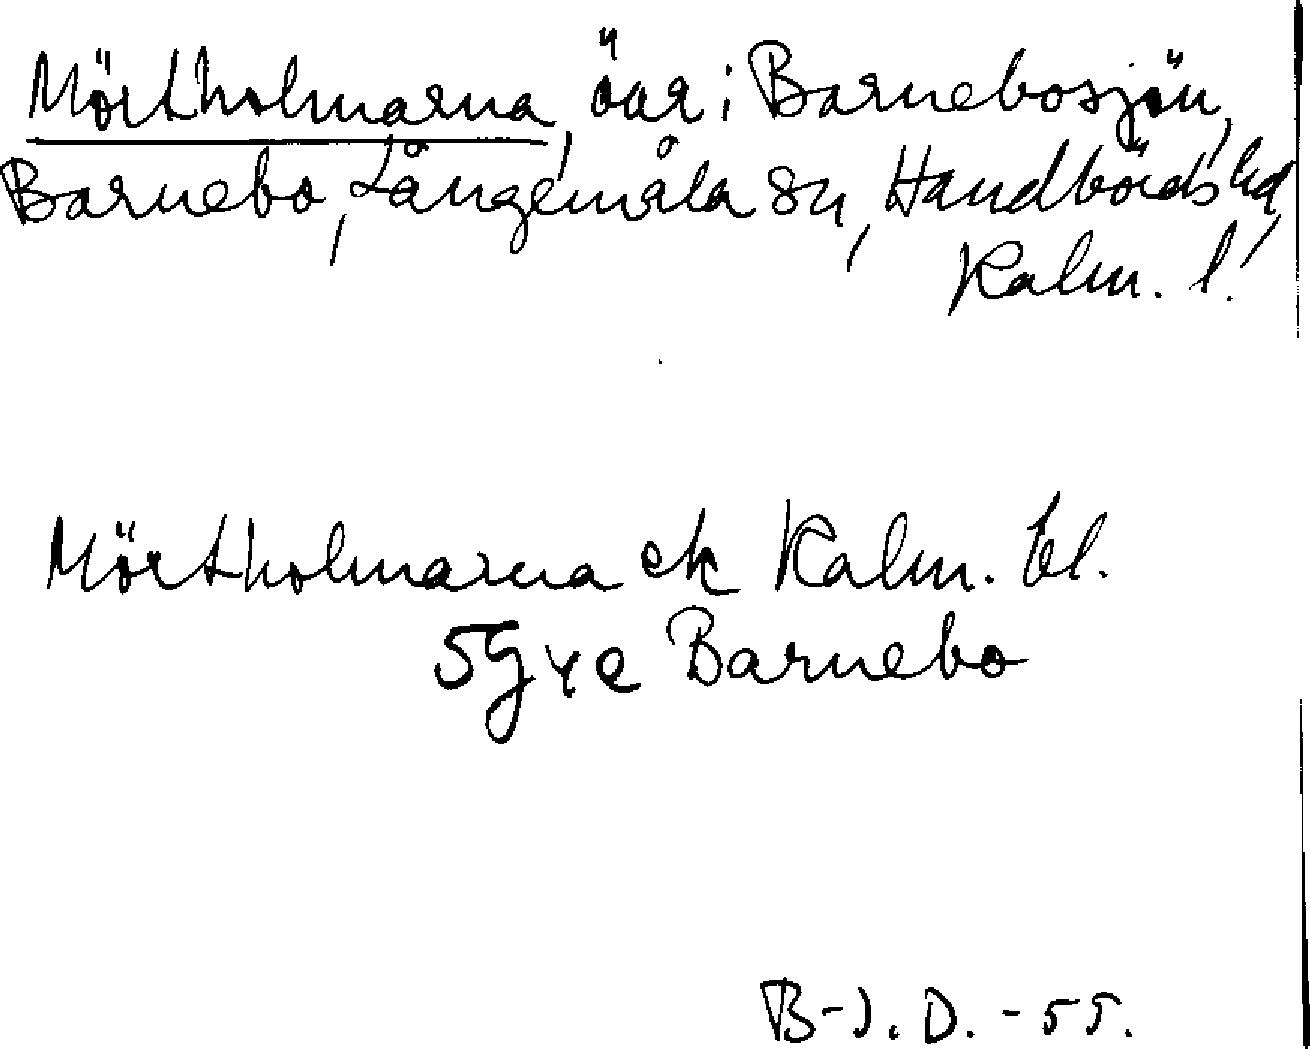 Mörtholmarna, öar i Barnebosjön,
Barnebo, Långemåla sn, Handbörds hd,
Kalm. l.
Mörtholmarna ek Kalm. bl.
5G4e Barnebo
B-J. D. -55.